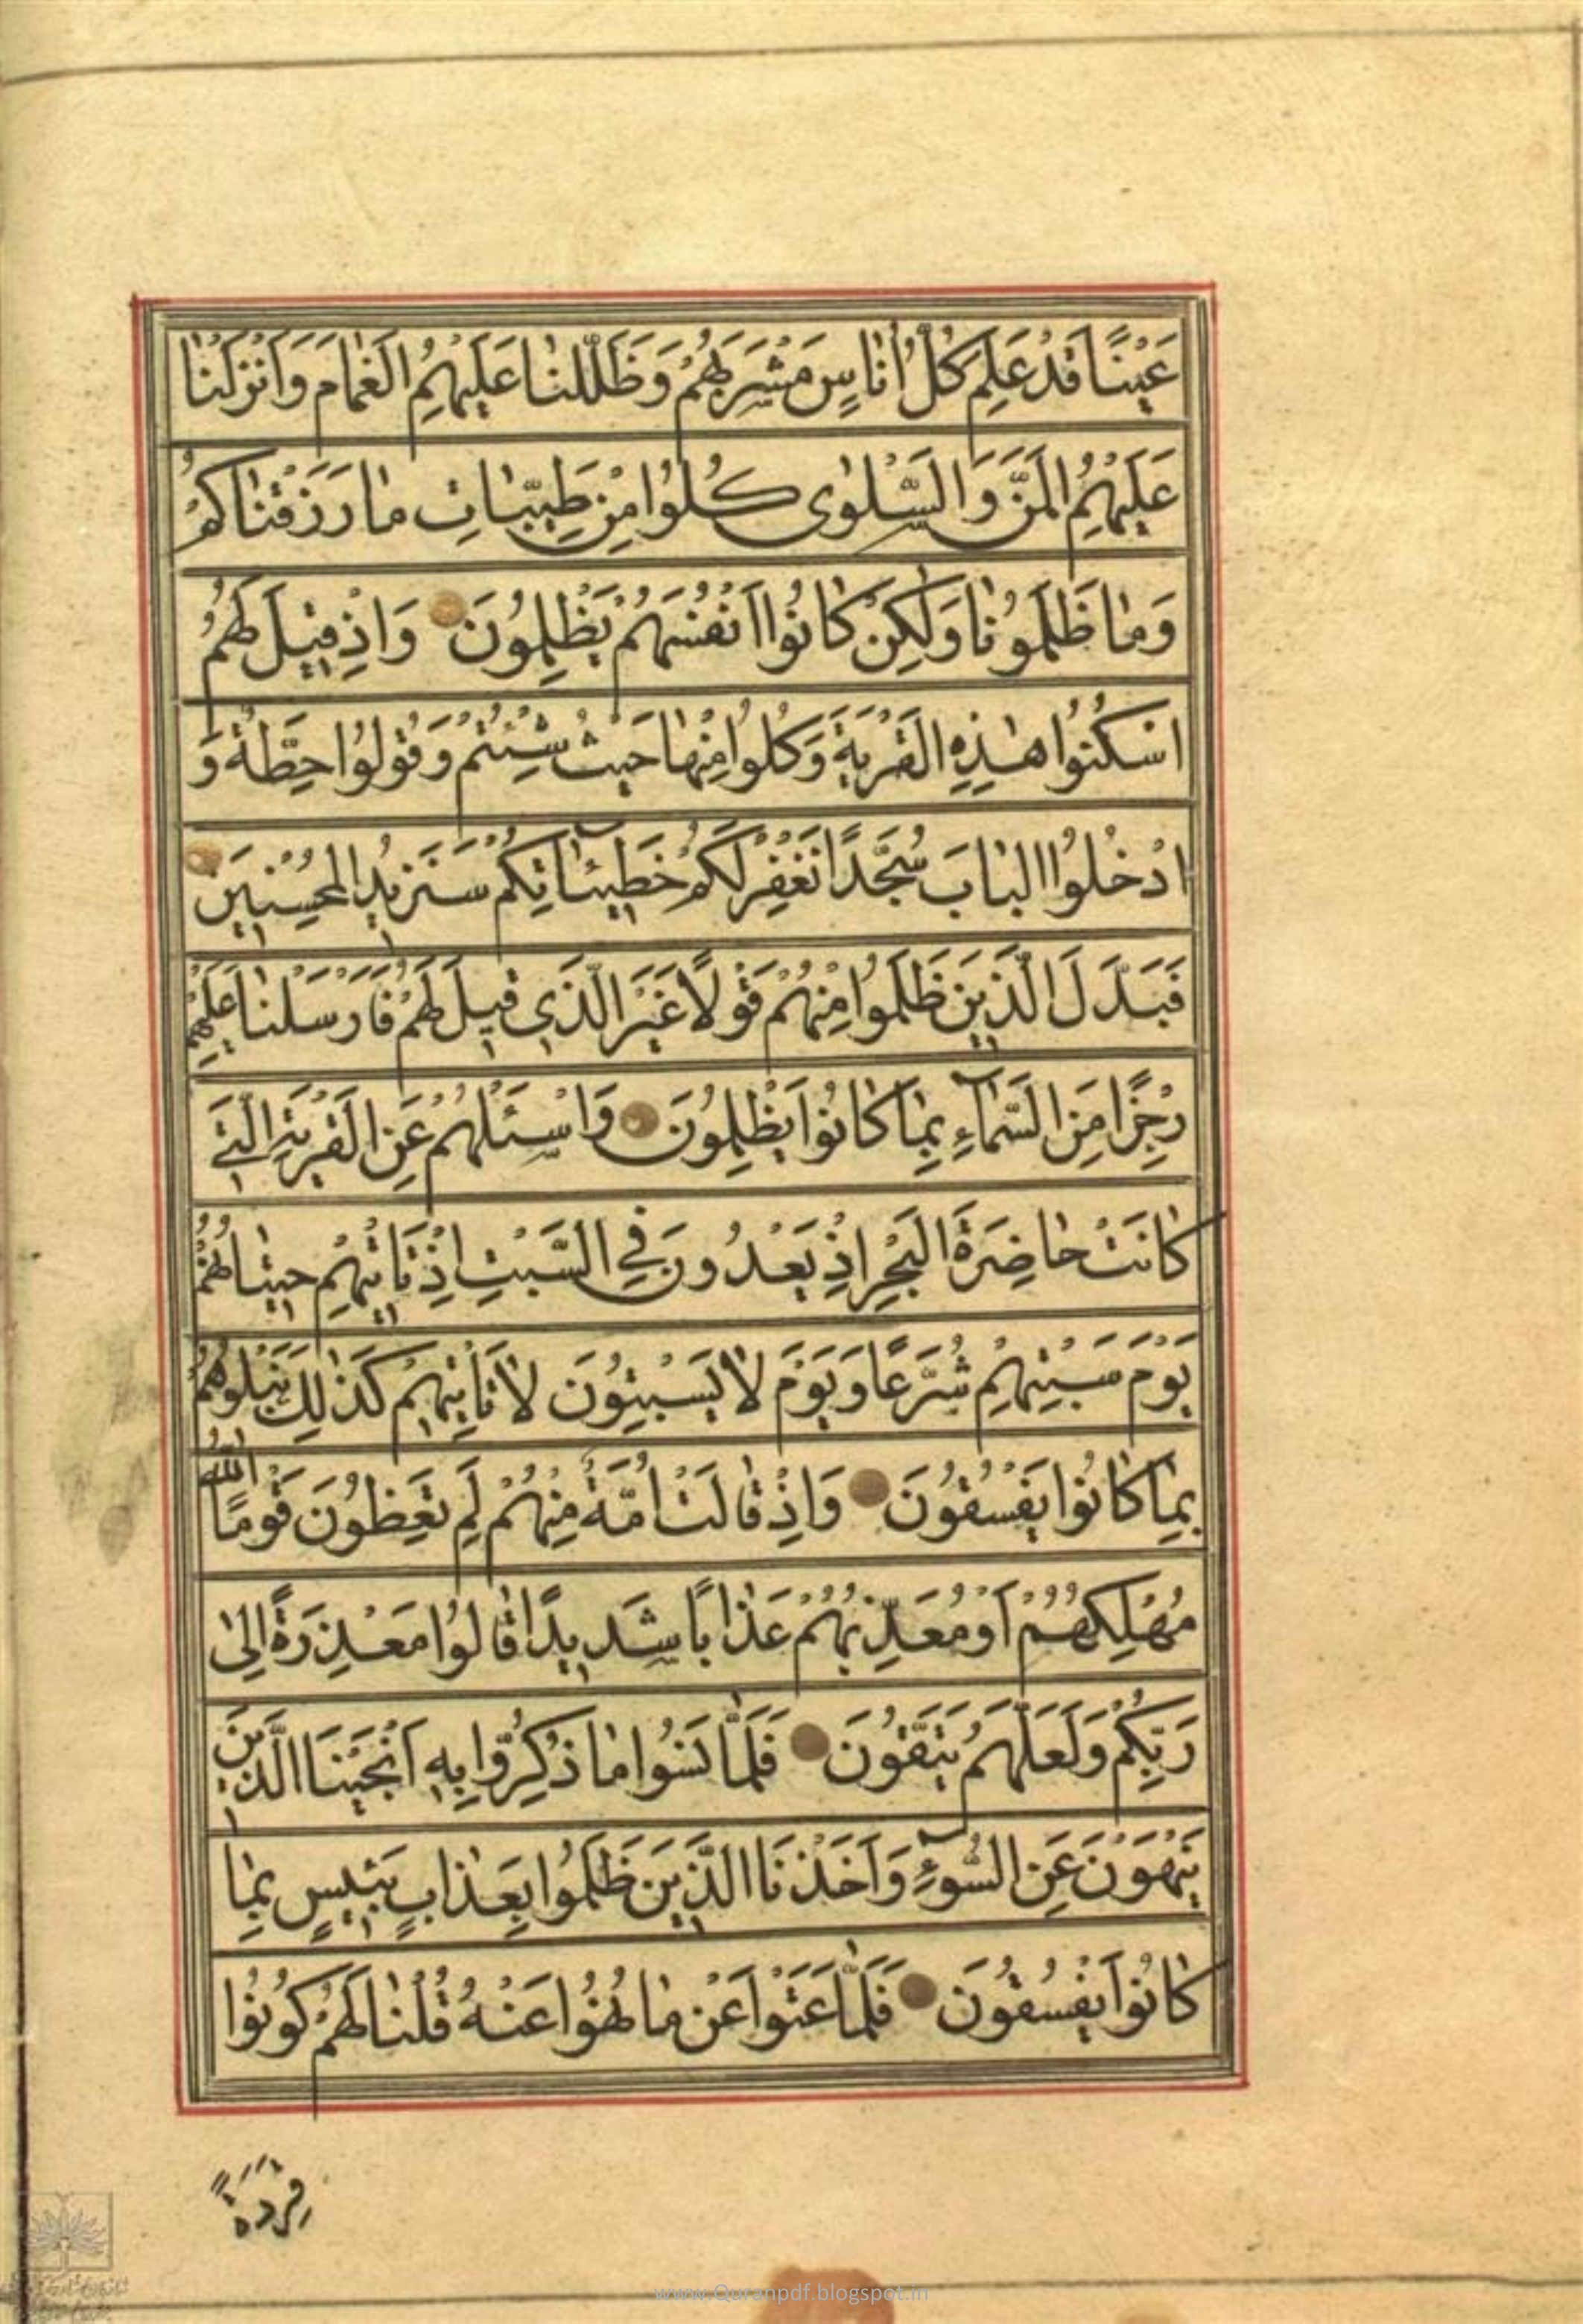 عَيْنًا قَدْ عَلِمَ كُلُّ أُنٰاسٍ مَشْرَبَهُمْ وَظَلَّلْنٰا عَلَيْهِمُ الْغَمٰامَ وَاَنْزَلْنٰا
عَلَيْهِمُ الْمَنَّ وَالسَّلْوٰى كُلُوا مِنْ طَيِّبٰاتِ مٰا رَزَقْنٰاكُمْ
وَمٰا ظَلَمُونٰا وَلٰكِنْ كٰانُوا اَنْفُسَهُمْ يَظْلِمُونَ وَاِذْ قِيلَ لَهُمُ
اسْكُنُوا هٰذِهِ الْقَرْيَةَ وَكُلُوا مِنْهٰا حَيْثُ شِئْتُمْ وَقُولُوا حِطَّةٌ وَ
ادْخُلُوا الْبٰابَ سُجَّدًا نَغْفِرْ لَكُمْ خَطِيئٰاتِكُمْ سَنَزِيدُ الْمُحْسِنِينَ
فَبَدَّلَ الَّذِينَ ظَلَمُوا مِنْهُمْ قَوْلًا غَيْرَ الَّذِي قِيلَ لَهُمْ فَاَرْسَلْنٰا عَلَيْهِمْ
رِجْزًا مِنَ السَّمٰاءِ بِمٰا كٰانُوا يَظْلِمُونَ وَاسْئَلْهُمْ عَنِ الْقَرْيَةِ الَّتِي
كٰانَتْ حٰاضِرَةَ الْبَحْرِ اِذْ يَعْدُونَ فِي السَّبْتِ اِذْ تَأْتِيهِمْ حِيتٰانُهُمْ
يَوْمَ سَبْتِهِمْ شُرَّعًا وَيَوْمَ لٰا يَسْبِتُونَ لٰا تَأْتِيهِمْ كَذٰلِكَ نَبْلُوهُمْ
بِمٰا كٰانُوا يَفْسُقُونَ وَاِذْ قٰالَتْ اُمَّةٌ مِنْهُمْ لِمَ تَعِظُونَ قَوْمًا اللّٰهُ
مُهْلِكُهُمْ اَوْ مُعَذِّبُهُمْ عَذٰابًا شَدِيدًا قٰالُوا مَعْذِرَةً اِلىٰ
رَبِّكُمْ وَلَعَلَّهُمْ يَتَّقُونَ فَلَمّٰا نَسُوا مٰا ذُكِّرُوا بِهِ اَنْجَيْنَا الَّذِينَ
يَنْهَوْنَ عَنِ السُّوءِ وَاَخَذْنَا الَّذِينَ ظَلَمُوا بِعَذٰابٍ بَئِيسٍ بِمٰا
كٰانُوا يَفْسُقُونَ فَلَمّٰا عَتَوْا عَنْ مٰا نُهُوا عَنْهُ قُلْنٰا لَهُمْ كُونُوا
قِرَدَةً
www.Quranpdf.blogspot.in